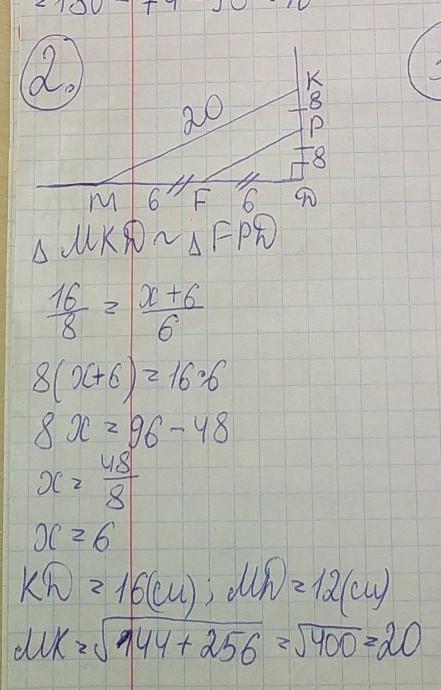 2.
20
K
8
P
8
M 6 F 6 D
△ MKD ~ △ FPD
16/8 = x+6/6
8(x+6) = 16·6
8x = 96 - 48
x = 48/8
x = 6
KD = 16(см); MD = 12(см)
MK = √144 + 256 = √400 = 20